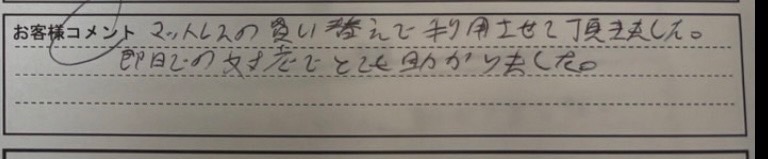 お客様コメント マットレスの買い替えで利用させて頂きました。
即日での対応でとても助かりました。